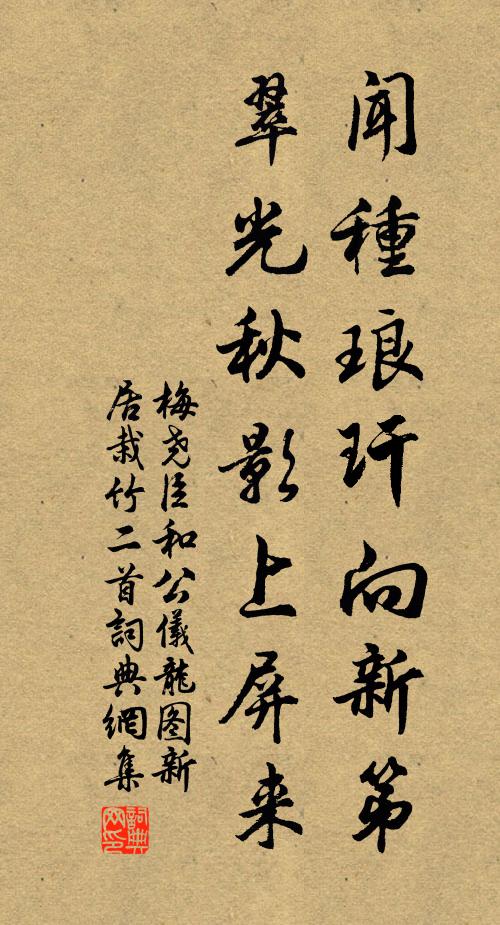 闻種琅玕向新第
翠光秋影上屏来
梅尧臣和公儀龍图新
居栽竹二首詞典網集
詞典
网印